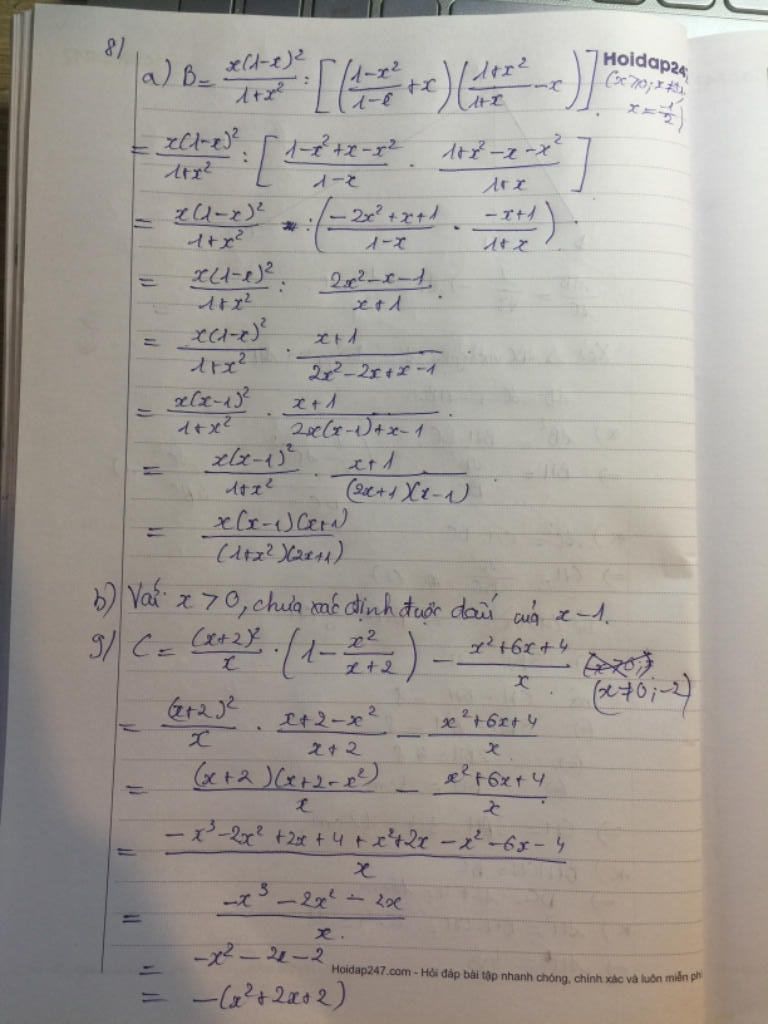 8)
a) B = x(1-x)²/(1+x²) : [((1-x²)/(1-x) + x)((1+x²)/(1+x) - x)]
Hoidap247
x = -1/2)
= x(1-x)²/(1+x²) : [(1-x²+x-x²)/(1-x) . (1+x²-x-x²)/(1+x)]
= x(1-x)²/(1+x²) : ((-2x²+x+1)/(1-x) . (-x+1)/(1+x))
= x(1-x)²/(1+x²) : (2x²-x-1)/(x+1)
= x(1-x)²/(1+x²) . (x+1)/(2x²-2x+x-1)
= x(x-1)²/(1+x²) . (x+1)/(2x(x-1)+x-1)
= x(x-1)²/(1+x²) . (x+1)/((2x+1)(x-1))
= x(x-1)(x+1)/((1+x²)(2x+1))
b) Với x > 0, chưa xác định được dấu của x-1.
9) C = (x+2)²/x . (1 - x²/(x+2)) - (x²+6x+4)/x
(x≠0;-2)
= (x+2)²/x . (x+2-x²)/(x+2) - (x²+6x+4)/x
= (x+2)(x+2-x²)/x - (x²+6x+4)/x
= (-x³-2x²+2x+4+x²+2x-x²-6x-4)/x
= (-x³-2x²-2x)/x
= -x²-2x-2
Hoidap247.com - Hỏi đáp bài tập nhanh chóng, chính xác và luôn miễn ph
= -(x²+2x+2)